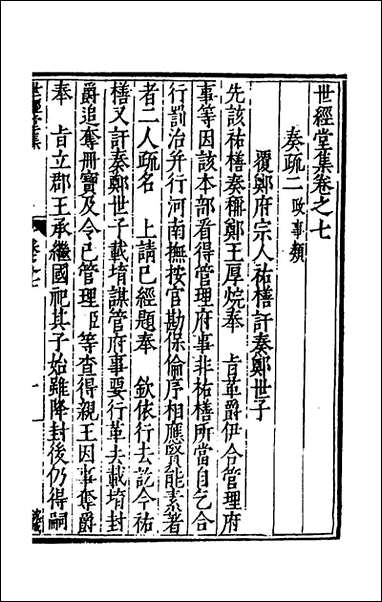 世經堂集卷之七
奏疏二 政事類
覆鄭府宗人祐橏訐奏鄭世子
先該祐橏奏稱鄭王厚烷奉 旨革爵伊今管理府
事等因該本部看得管理府事非祐橏所當自乞合
行罰治并行河南撫按官勘保倫序相應賢能素著
者二人疏名 上請已經題奉 欽依行去訖今祐
橏又訐奏鄭世子載堉謀管府事要行革去載堉封
爵追奪冊寶及令已管理臣等查得親王因事奪爵
奉 旨立郡王承繼國祀其子始雖降封後仍得嗣
世經堂集
卷之七
一